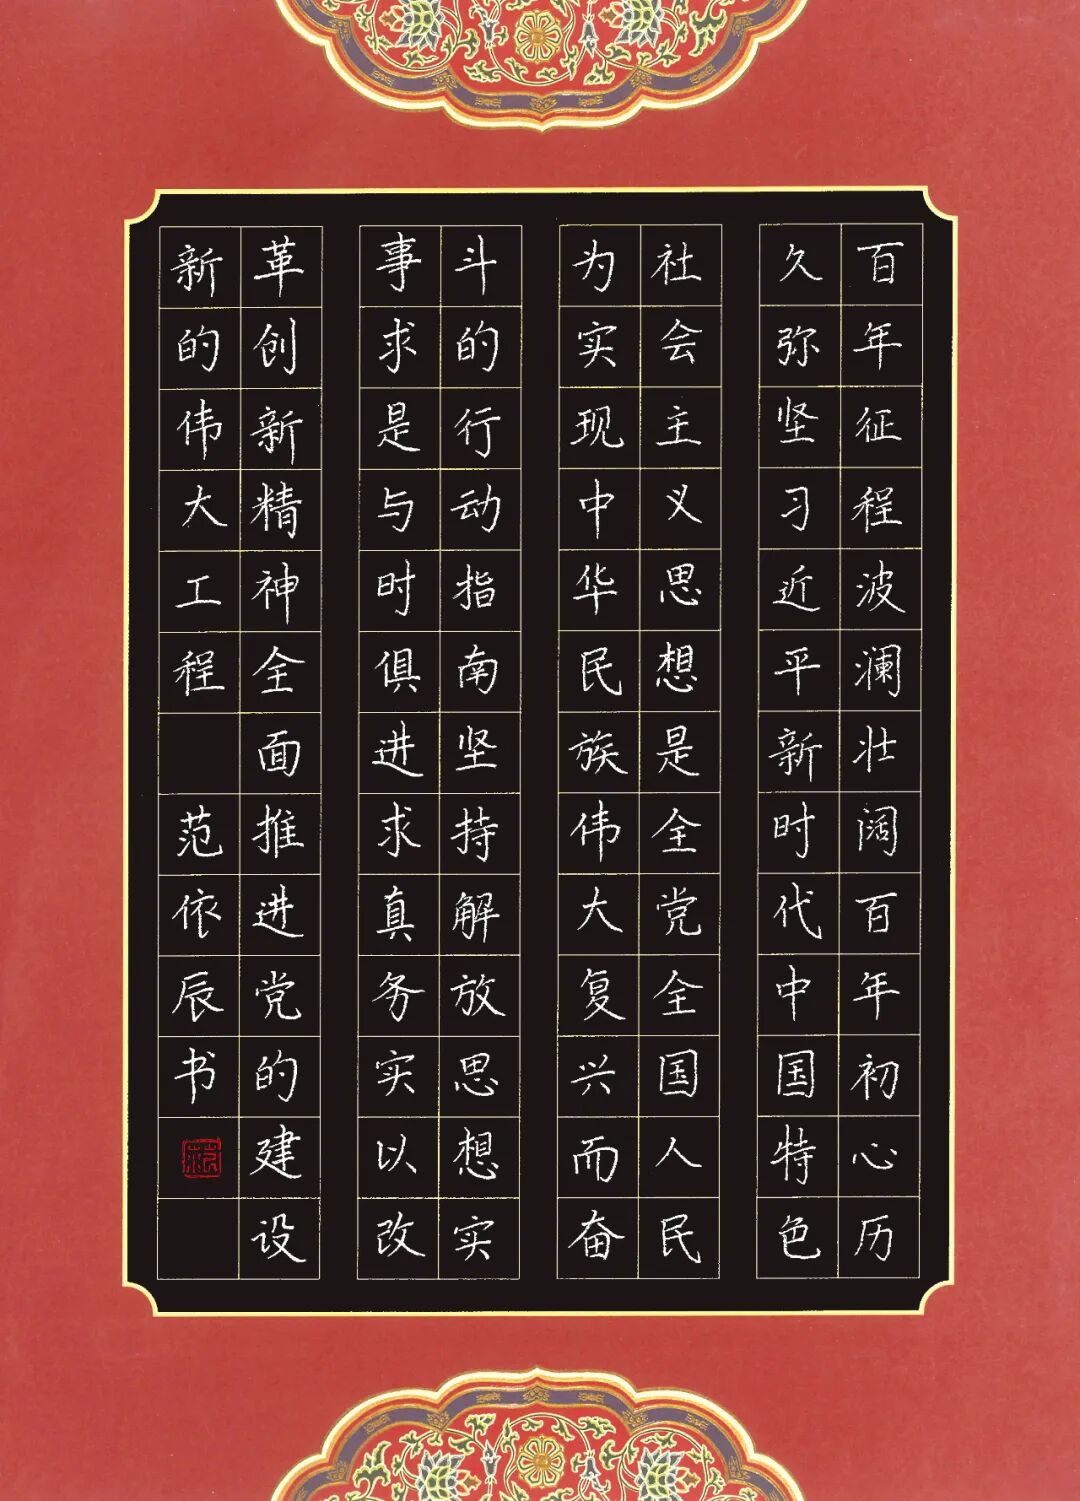 百年征程波澜壮阔百年初心历
久弥坚习近平新时代中国特色
社会主义思想是全党全国人民
为实现中华民族伟大复兴而奋
斗的行动指南坚持解放思想实
事求是与时俱进求真务实以改
革创新精神全面推进党的建设
新的伟大工程 范依辰书